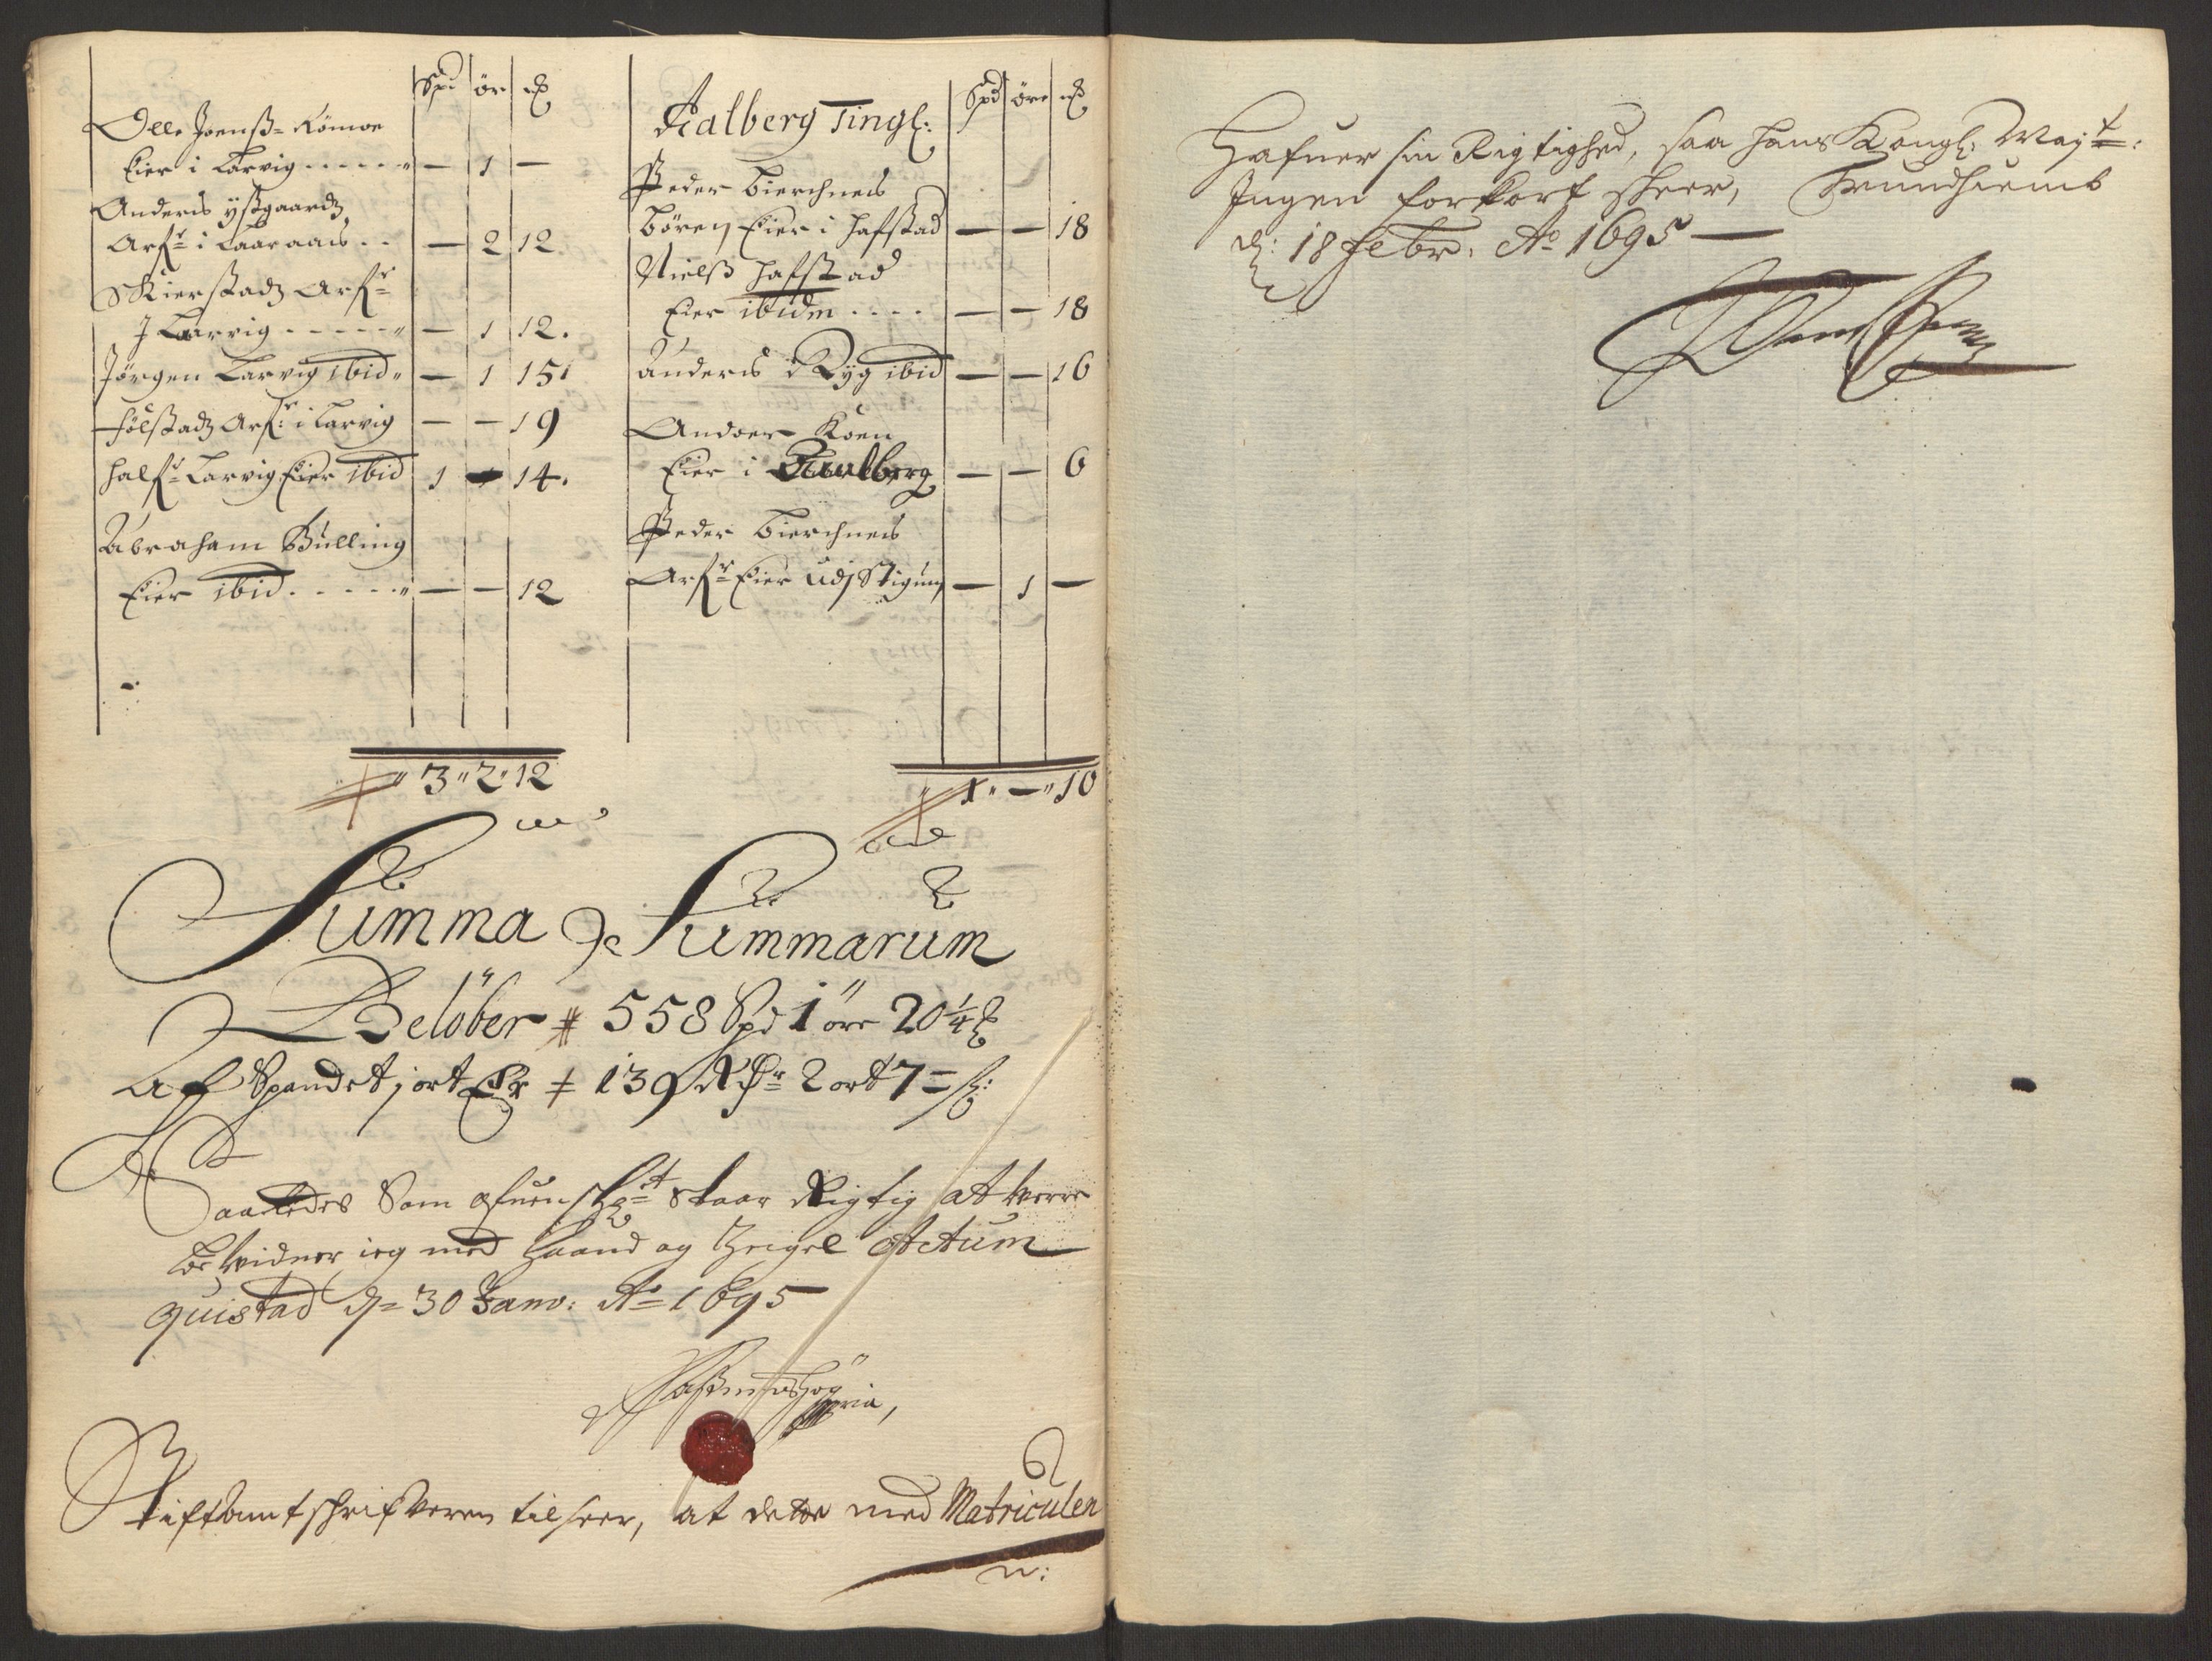 Spd ør
Olle Joenß= Kömoe
Eier i Larvig - - - - - " — 1 —
Anders ystgaardz
Arfr i Laaraais . . — 2 12
Skierstadz Arfr
J Laarvig - - - - - " — 1 12.
Jörgen Larvig ibid " — 1 15
Hölstadz Arfr: i Larvig — — 19
Halfr Larvig Eier ibid 1 — 14.
Abraham Bülling
Eier ibid. - - - - - " — — 12
" 3 " 2 " 12
Aalberg Tingl: Spd øre
Peder Bierchneis
Børen Eier i Hafstad — — 18
Nielß Hafstad
Eier ibidm . . . . — — 18
Anders i Ryg ibid — — 16
Eier i Aalberg — — 6
Peder Bierchneis
Arfr Eier udj Stigum — 1 —
1 " — " 10
Summa Summarum
Belöber 558 Spd 1 öre 20 1/4
Af Spandet j ort Er 139 Rdr 2 ort 7 ß:
Saaledes Som ofuenskt staar Rigtig at werre
bewidner ieg med Haand og Zeigel Actum
Quistad d= 30 Janv: Ao 1695
Stiftamtschrifveren tilseer, at dette med Matriculen
Hafuer sin Rigtighed, saa hans Kongl: Mayt:
Ingen forkort skeer, Trundhiemb
d: 18 Febr: Ao 1695 —